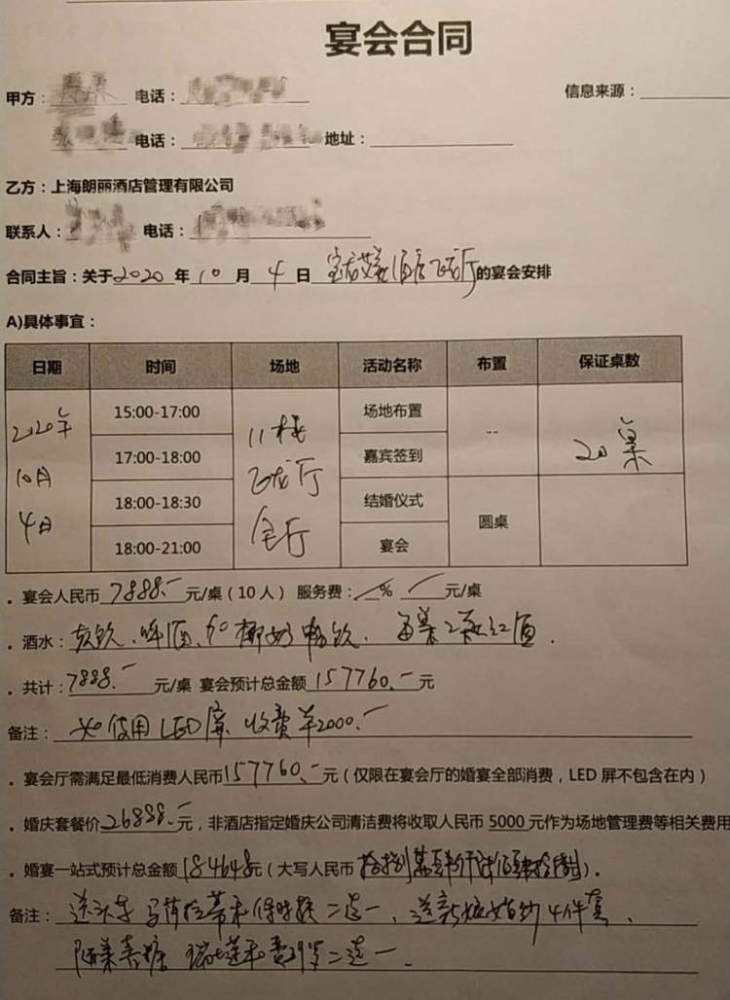 宴会合同
甲方： 电话： 信息来源：
电话： 地址：
乙方：上海朗丽酒店管理有限公司
联系人： 电话：
合同主旨：关于2020年10月4日 宝龙艾美酒店飞龙厅的宴会安排
A)具体事宜：
日期 时间 场地 活动名称 布置 保证桌数
2020年10月4日 11楼飞龙厅全厅 -- 20桌
15:00-17:00 场地布置
17:00-18:00 嘉宾签到
18:00-18:30 结婚仪式 圆桌
18:00-21:00 宴会
. 宴会人民币7888.-元/桌（10人） 服务费：/% / 元/桌
. 酒水：软饮、啤酒、加椰奶畅饮. 每桌2瓶红酒.
. 共计：7888.-元/桌 宴会预计总金额157760.-元
备注：如使用LED屏 收费¥2000.-
. 宴会厅需满足最低消费人民币157760.-元（仅限在宴会厅的婚宴全部消费，LED屏不包含在内）
. 婚庆套餐价26888.-元，非酒店指定婚庆公司清洁费将收取人民币5000元作为场地管理费等相关费用
. 婚宴一站式预计总金额184648元（大写人民币 ）.
备注：送头车 玛莎拉蒂和保时捷二选一、送新娘婚纱4件套、
喜糖 瑞士莲和费列罗二选一.